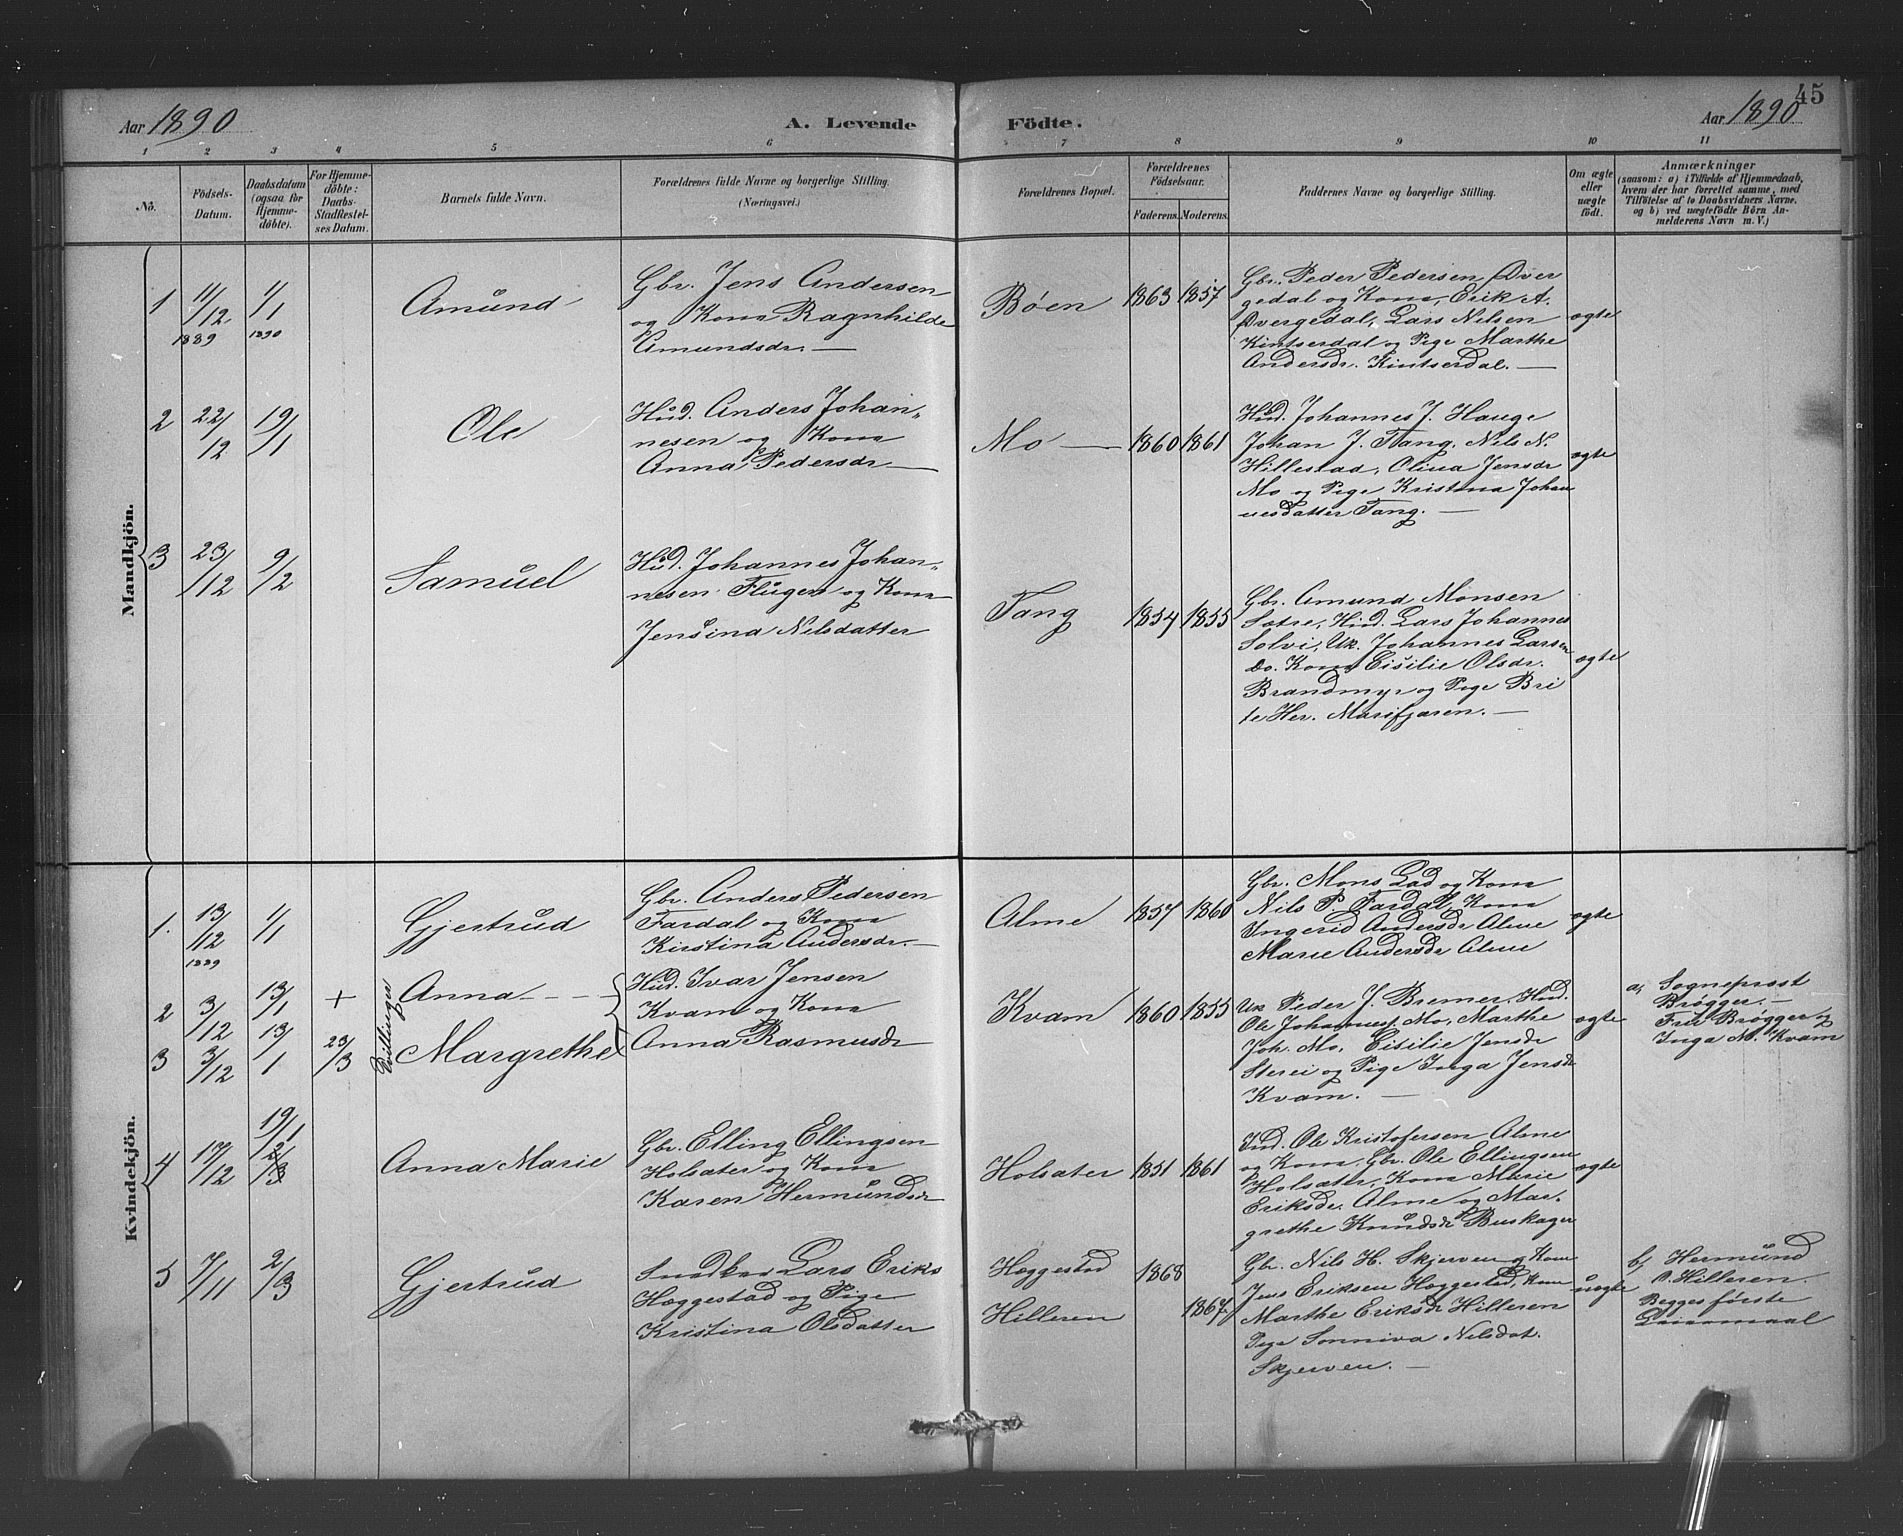 Aar 1890
A. Levende
Födte.
Aar 1890
45
1 2 3 4 5 6 7 8 9 10 11
No.
Födsels-
Datum.
Daabsdatum
(ogsaa for
Hjemme-
döbte).
For Hjemme-
döbte:
Daabs-
Stadfæstel-
ses Datum.
Barnets fulde Navn.
Forældrenes fulde Navne og borgerlige Stilling.
(Næringsvei.)
Forældrenes Bopæl.
Forældrenes
Födselsaar.
Faderens. Moderens.
Faddernes Navne og borgerlige Stilling.
Om ægte
eller
uægte
födt.
Anmærkninger
(saasom: a) i Tilfælde af Hjemmedaab,
hvem der har forrettet samme, med
Tilföielse af to Daabsvidners Navne,
og b) ved uægtefödte Börn An-
melderens Navn m. V.)
Mandkjön.
1
11/12
1889
1/1
1890
Amund
Gbr. Jens Andersen
og Kona Ragnhilde
Amundsdr. —
Bøen
1863 1857
Gbr. Peder Pedersen Dver
gedal og Kona, Erik A.
Dvergedal, Lars Nilsen
Kintserdal og Pige Marthe
Andersdr. Kintserdal. —
ægte
2
22/12
19/1
Ole
Hud. Anders Johan„
nesen og Kona
Anna Pedersdr —
Mo —
1860 1861
Hud. Johannes J. Hauge
Johan J. Tang, Nils N.
Hillestad, Oliva Jensdr
Mo og Pige Kristina Johan
nesdatter Tang. —
ægte
3
23/12
9/2
Samuel
Hud. Johannes Johan„
nesen Fluger og Kona
Jensina Nilsdatter
Tang
1854 1855
Gbr. Amund Monsen
Sætre, Hud. Lars Johannes
Solvi, Uk. Johannes Larsen
do. Kona Cisilie Olsdr.
Brandmyr og Pige Bri
te Her. Marifjæren. —
ægte
Kvindekjön.
1.
13/12
1889
1/1
Gjertrud
Gbr. Anders Pedersen
Fardal og Kona
Kirstina Andersdr. —
Alme
1857 1860
Gbr. Mons Lad og Kona
Nils P. Fardal, Kona
Ingerid Andersdr Alme
Marie Andersdr Alme
ægte
2
3/12
13/1
+
Tvillinger
Anna - - -
Hud. Ivar Jensen
Kvam og Kona
Anna Rasmusdr
Kvam
1860 1855
Uk Peder J. Bremer, Hud.
Ole Johannes Mo, Marthe
Joh. Mo, Cisilie Jensdr
Sterei og Pige Inga Jensdr
Kvam. —
ægte
a, Sogneprost
Brøgger. —
Fru Brøgger og
Inga M. Kvam
3
3/12
13/1
23/3
Margrethe
4
17/12
19/1
2/3
Anna Marie
Gbr. Elling Ellingsen
Holsæter og Kona
Karen Hermundsdr
Holsæter
1851 1861
Ind. Ole Kristofersen Alme
og Kona, Gbr. Ole Ellingsen
Holsæter, Kona Marie
Eriksdr. Alme og Mar-
grethe Knudsdr Buskager
ægte
5
7/11
2/3
Gjertrud
Snedker Lars Eriks
Hæggestad og Pige
Kristina Olsdatter
Hæggestad
Hilleren
1868
1867.
Gbr. Nils H. Skjerven og Kona
Jens Eriksen Hæggestad, Kona
Marthe Eriksdr Hilleren
Pige Sonniva Nilsdat.
Skjerven. —
uægte
b, Hermund
O. Hilleren.
Begges første
Leiermaal